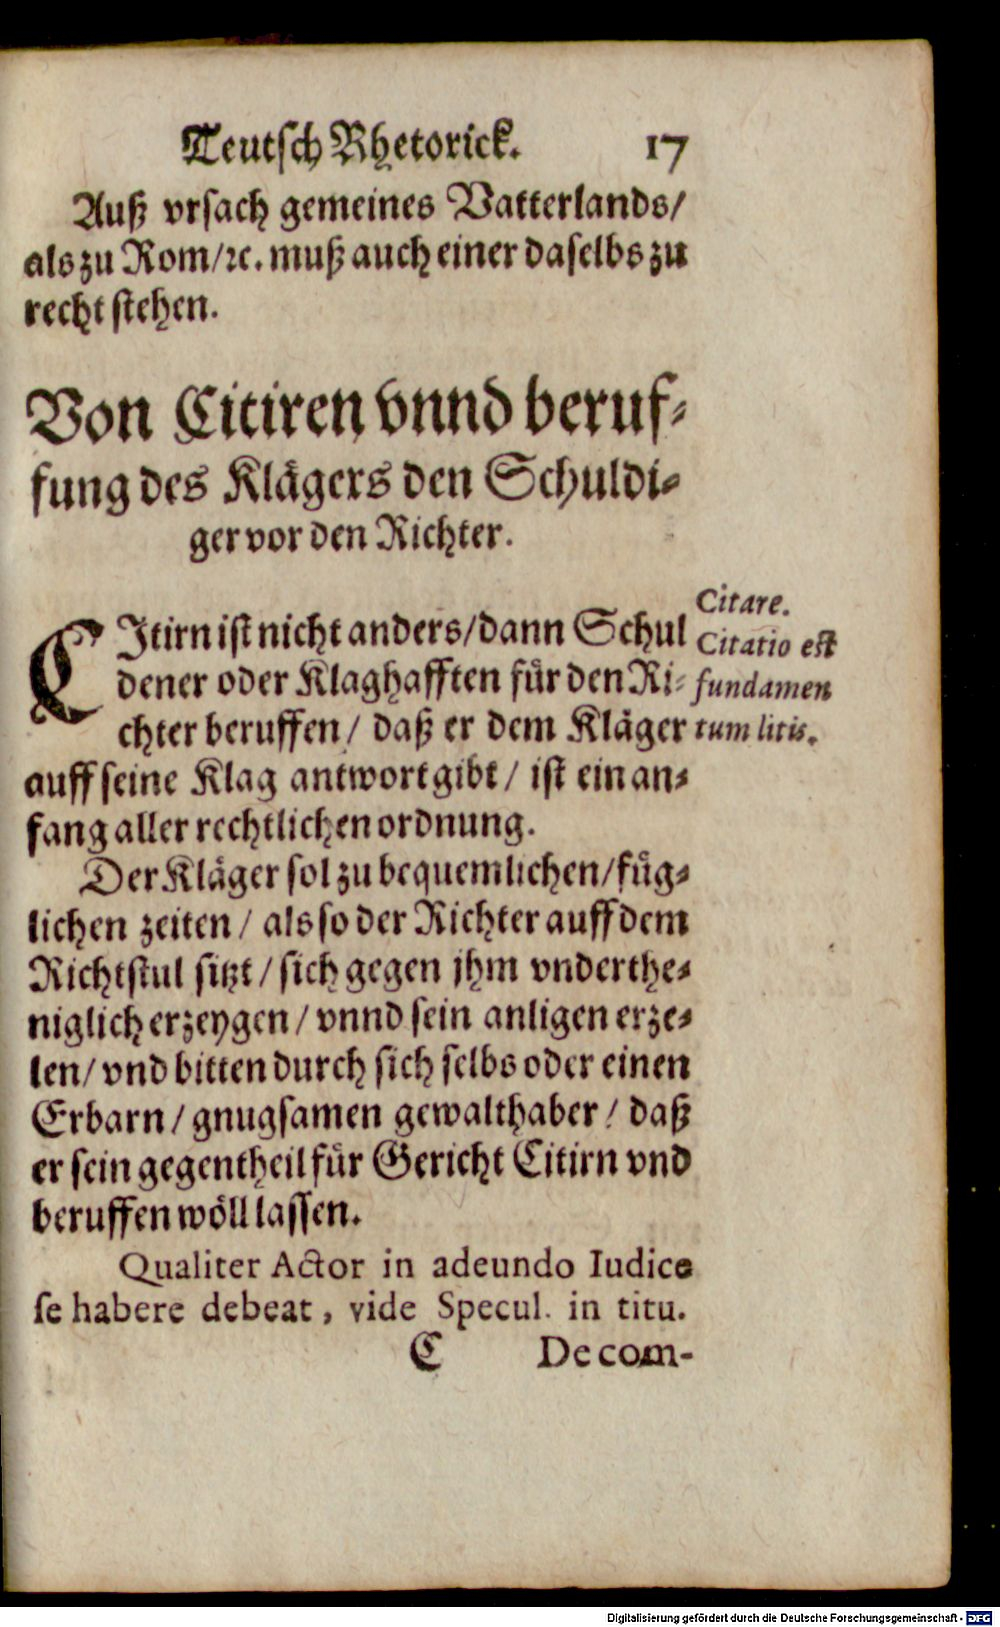 Teutsch Rhetorick. 17
Auß vrsach gemeines Vatterlands/
als zu Rom/ꝛc. muß auch einer daselbs zu
recht stehen.
Von Citiren vnnd beruf-
fung des Klägers den Schuldi-
ger vor den Richter.
CItirn ist nicht anders/dann Schul
dener oder Klaghafften für den Ri-
chter beruffen/ daß er dem Kläger
auff seine Klag antwort gibt/ ist ein an-
fang aller rechtlichen ordnung.
Citare.
Citatio est
fundamen
tum litis.
Der Kläger sol zu bequemlichen/füg-
lichen zeiten/ als so der Richter auff dem
Richtstul sitzt/ sich gegen jhm vnderthe-
niglich erzeygen/ vnnd sein anligen erze-
len/ vnd bitten durch sich selbs oder einen
Erbarn/ gnugsamen gewalthaber/ daß
er sein gegentheil für Gericht Citirn vnd
beruffen wöll lassen.
Qualiter Actor in adeundo Iudice
se habere debeat, vide Specul. in titu.
C De com-
Digitalisierung gefördert durch die Deutsche Forschungsgemeinschaft - DFG